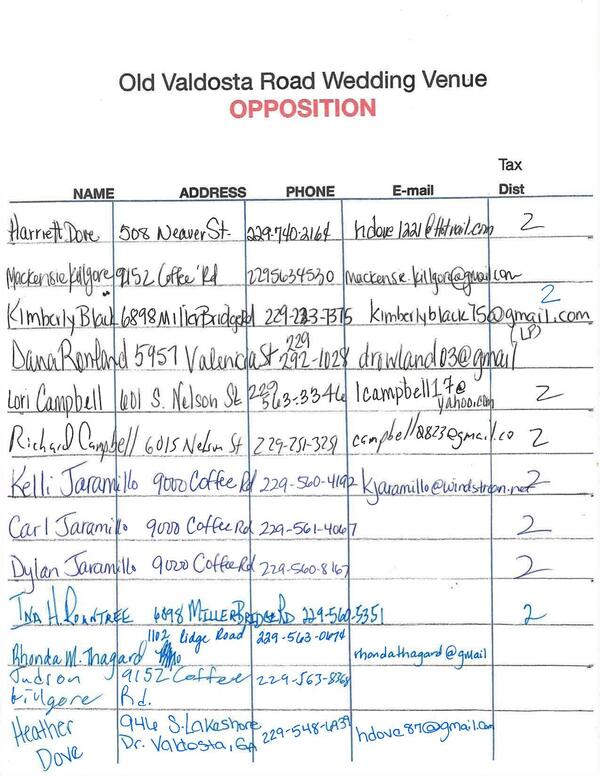 Old Valdosta Road Wedding Venue
OPPOSITION
Tax
NAME ADDRESS PHONE E-mail Dist
Harriett Dove 508 Weaver St. 229-740-2164 hdove1221@hotmail.com 2
Mackensie Killgore 9152 Coffee Rd 2295634530 mackensie.killgore@gmail.com
2
Kimberly Black 6898 Miller Bridge Rd 229-223-7375 kimberlyblack75@gmail.com
(LP)
229
Dana Rowland 5957 Valencia St 292-1028 drowland03@gmail
Lori Campbell 601 S. Nelson St 229 563-3346 lcampbell17@ 2
yahoo.com
Richard Campbell 601 S Nelson St 229-251-3251 campbell2823@gmail.co 2
Kelli Jaramillo 9000 Coffee Rd 229-560-4192 kjaramillo@windstream.net 2
Carl Jaramillo 9000 Coffee Rd 229-561-4067 2
Dylan Jaramillo 9020 Coffee Rd 229-560-8167 2
Ina H. Rountree 6898 Miller Bridge Rd 229-560-5351 2
1102 Ridge Road 229-563-0674
Rhonda M. Thagard rhondathagard@gmail
Judson 9152 Coffee 229-563-8368
Killgore Rd.
Heather 946 S. Lakeshore 229-548-6939 hdove87@gmail.com
Dove Dr. Valdosta, GA